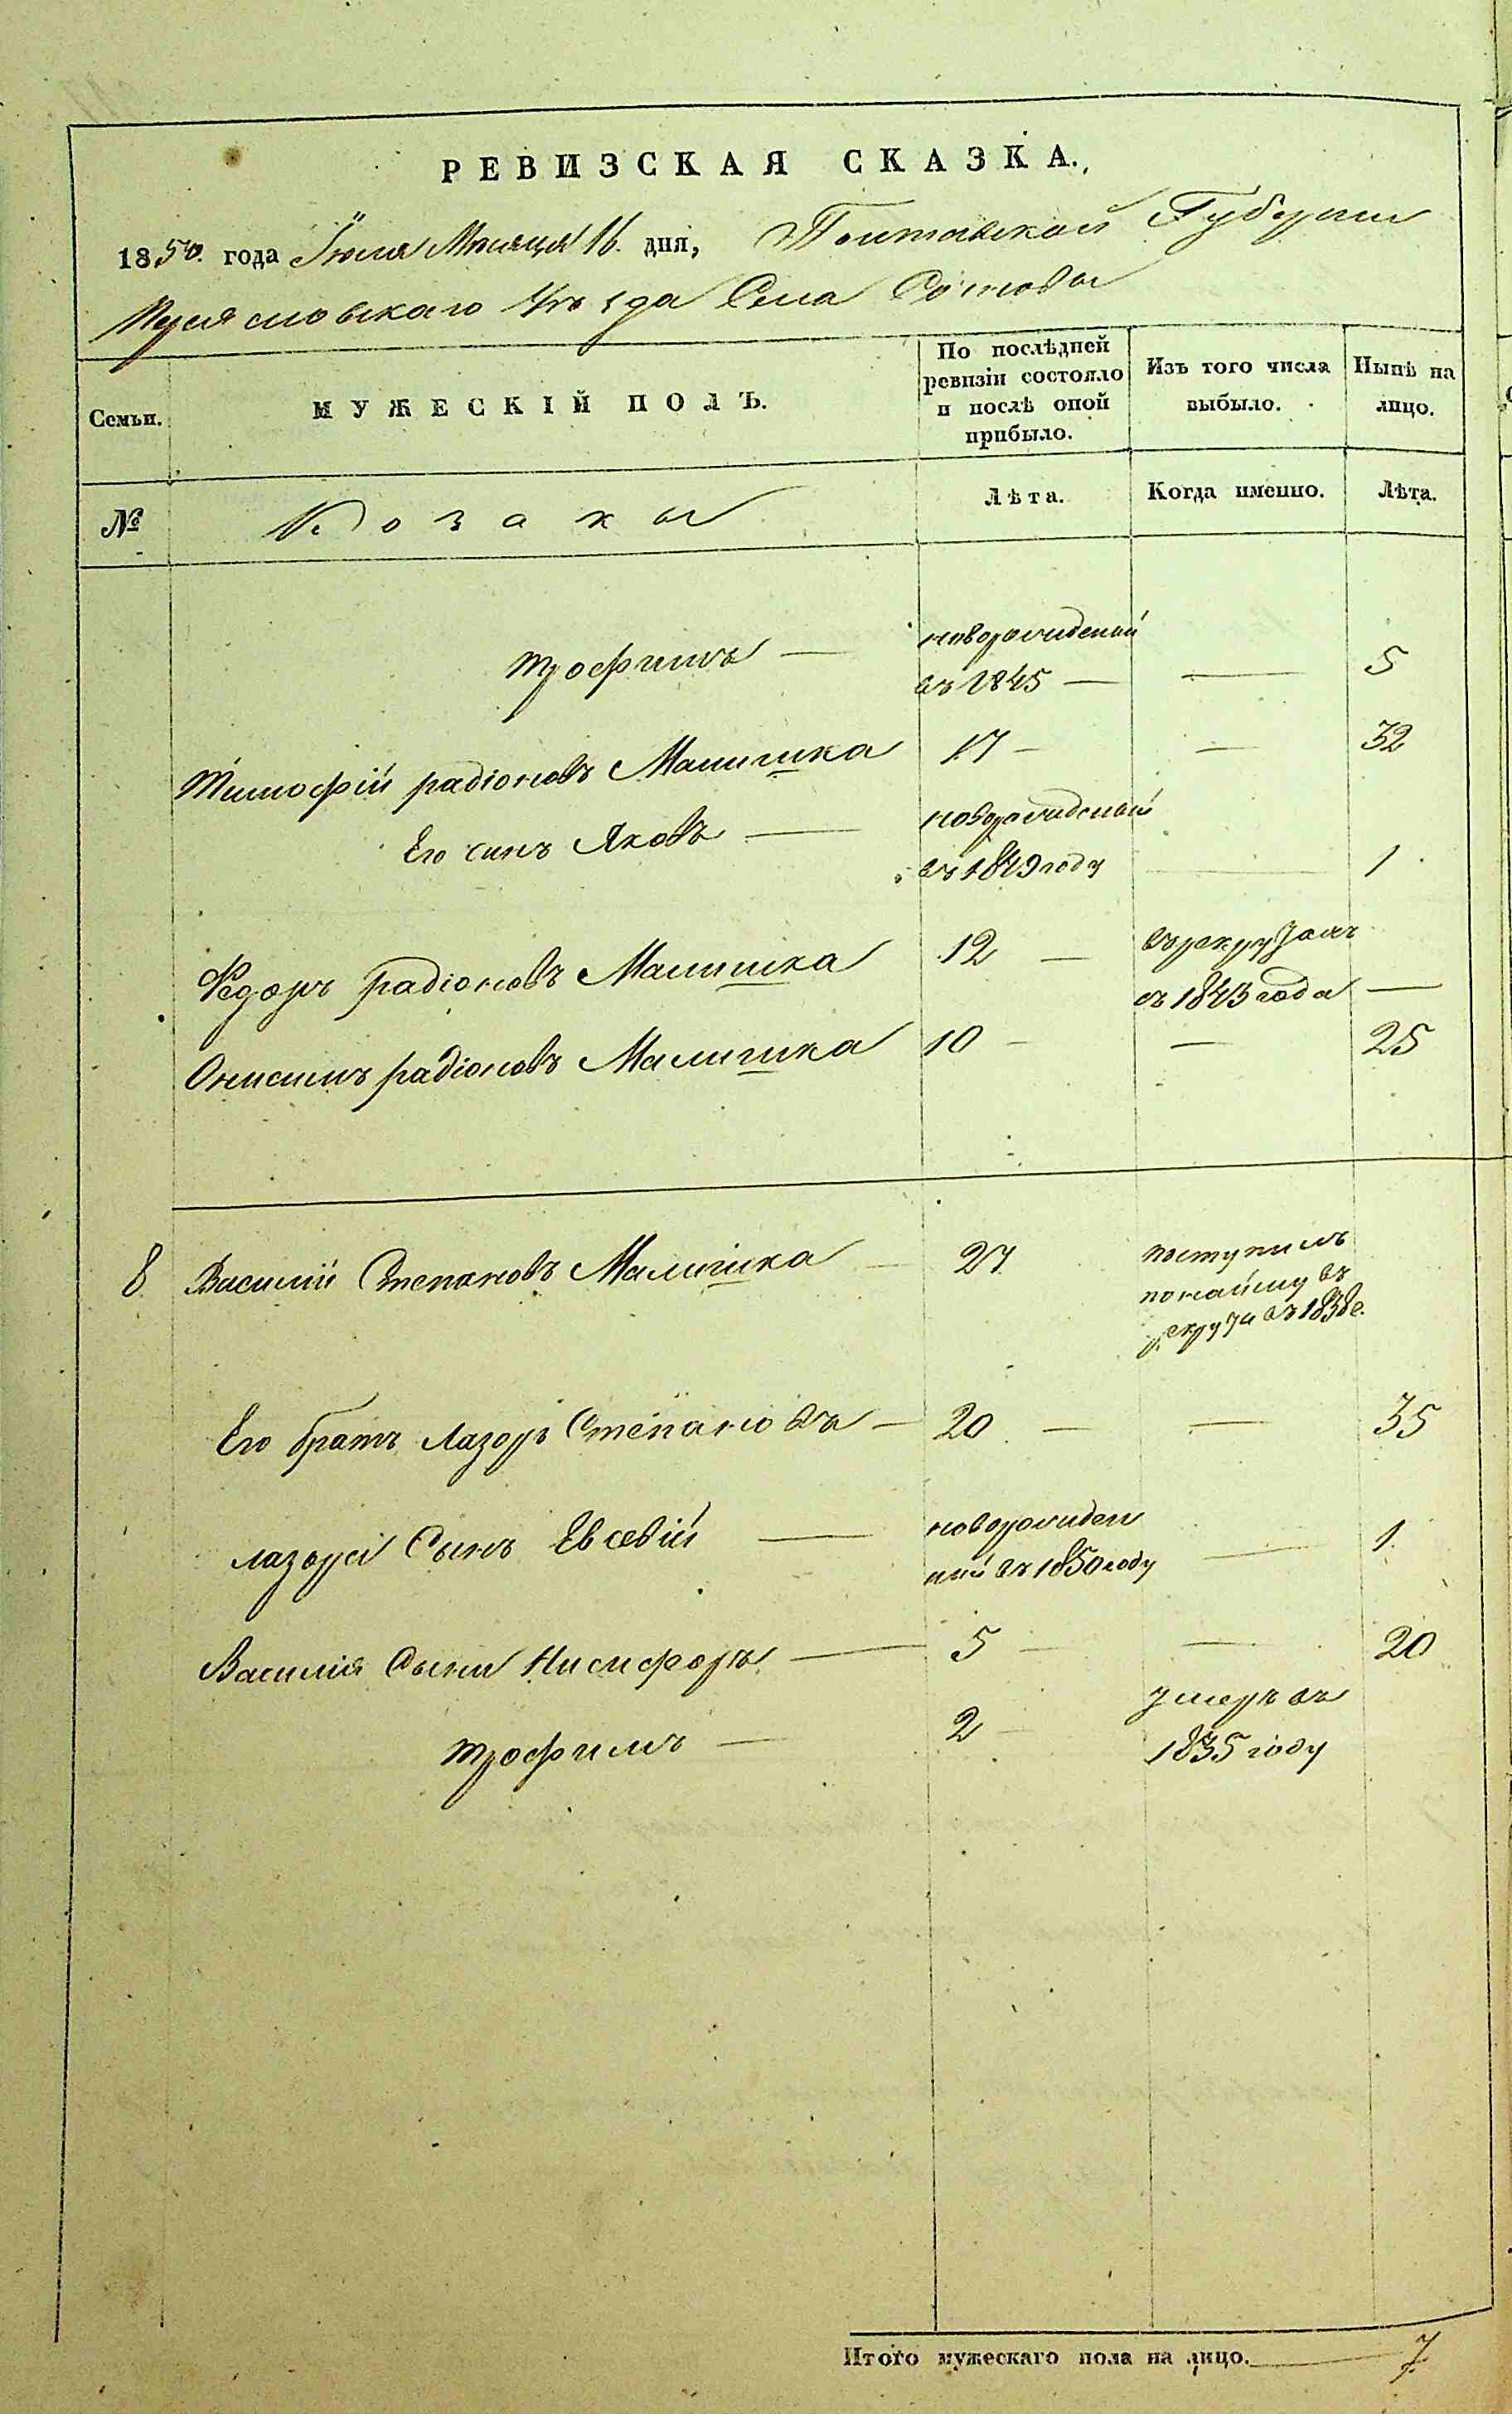 РЕВИЗСКАЯ СКАЗКА.
1850. года Іюля Месяця 16. дня, Полтавской Губерніи
Переясловскаго Уѣзда Села Сошовы
Семьи.
МУЖЕСКІЙ ПОЛЪ.
По послѣдней ревизіи состояло и послѣ оной прибыло.
Изъ того числа выбыло.
Нынѣ на лицо.
№
Козаки
Лѣта.
Когда именно.
Лѣта.
трофимъ — новорожденый
въ 1845 — — 5
Тимофій радіоновъ Малишка 17 — — 32
Его синъ Яковъ — новорожденый
въ 1849 году — 1
Федоръ радіоновъ Малишка 12 — въ рекрутахъ
съ 1843 года —
Онисимъ радіоновъ Малишка 10 — — 25
8 Василій Степановъ Малишка — 27 поступилъ
по найму въ
рекруты въ 1838 г.
Его братъ Лазорь Степановъ — 20 — — 35
Лазоря Сынъ Евсевій — новорожден
ний въ 1850 году — 1.
Василія Сыни Никифоръ — 5 — — 20
трофимъ — 2 — умеръ въ
1835 году
Итого мужескаго пола на лицо. — 7